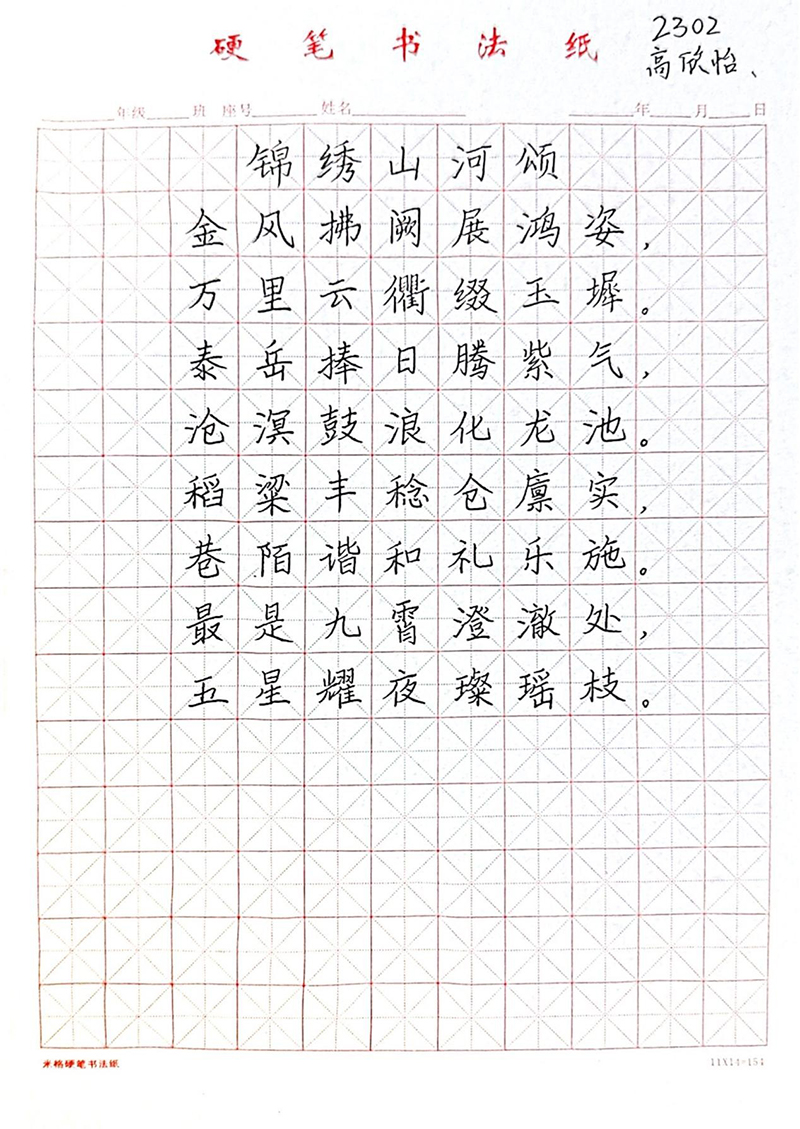 硬笔书法纸
2302
高欣怡、
年级 班 座号 姓名 年 月 日
锦绣山河颂
金风拂阙展鸿姿，
万里云衢缀玉墀。
泰岳捧日腾紫气，
沧溟鼓浪化龙池。
稻粱丰稔仓廪实，
巷陌谐和礼乐施。
最是九霄澄澈处，
五星耀夜璨瑶枝。
米格硬笔书法纸
11X14=154